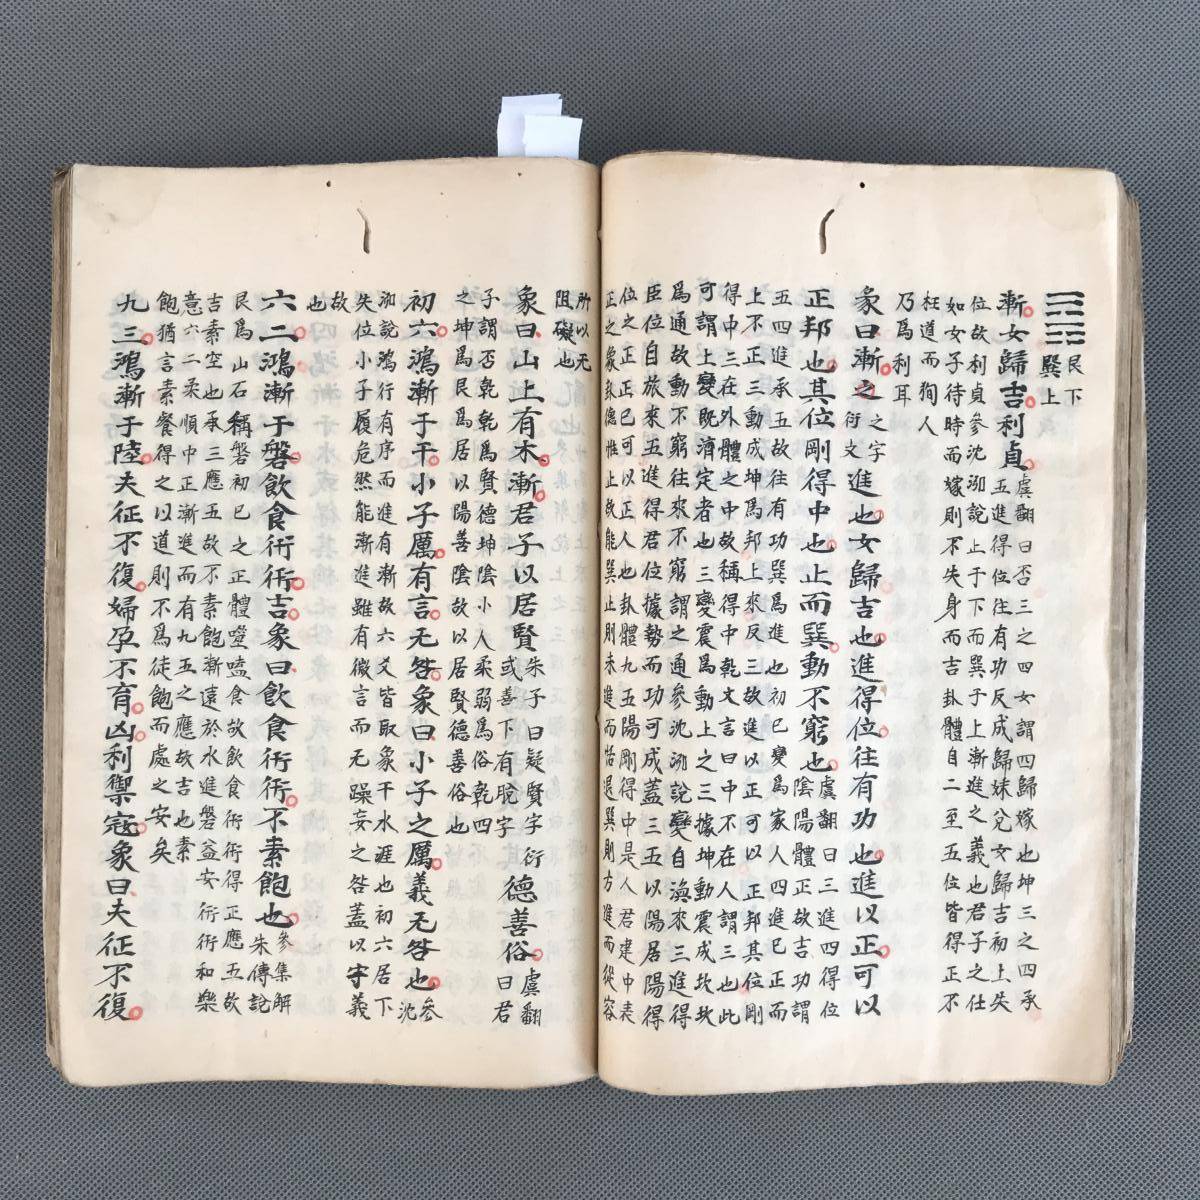 艮下
巽上
漸女歸吉利貞虞翻曰否三之四女謂四歸嫁也坤三之四承
五進得位往有功反成歸妹兌女歸吉初上失
位故利貞參沈㳓說止于下而巽于上漸進之義也君子之仕
如女子待時而嫁則不失身而吉卦體自二至五位皆得正不
枉道而狥人
乃爲利耳
彖曰漸之之字
衍文進也女歸吉也進得位往有功也進以正可以
正邦也其位剛得中也止而巽動不窮也虞翻曰三進四得位
陰陽體正故吉功謂
五四進承五故往有功巽爲進也初已變爲家人四進已正而
上不正三動成坤爲邦上來反三故進以正可以正邦其位剛
得中三在外體之中故稱得中乾文言曰中不在人謂三也此
可謂上變既濟定者也三變震爲動上之三據坤動震成坎坎
爲通故動不窮往來不窮謂之通參沈㳓說變自渙來三進得
臣位自旅來五進得君位據勢而功可成蓋三五以陽居陽得
位之正正已可以正人也卦體九五陽剛得中是人君建中表
正之象卦德惟止故能巽止則未進而恬退巽則方進而從容
所以无
阻礙也
象曰山上有木漸君子以居賢朱子曰疑賢字衍
或善下有脫字德善俗虞翻
曰君
子謂否乾乾爲賢德坤陰小人柔弱爲俗乾四
之坤爲艮爲居以陽善陰故以居賢德善俗也
初六鴻漸于干小子厲有言无咎象曰小子之厲義无咎也參
沈
㳓說鴻行有序而進有漸故六爻皆取象干水涯也初六居下
失位小子履危然能漸進雖有微言而无躁妄之咎蓋以守義
故
也
六二鴻漸于磐飲食衎衎吉象曰飲食衎衎不素飽也參集解
朱傳說
艮爲山石稱磐初已之正體噬嗑食故飲食衎衎得正應五故
吉素空也承三應五故不素飽漸遠於水進磐益安衎衎和樂
意六二柔順中正漸進而有九五之應故吉也素
飽猶言素餐得之以道則不爲徒飽而處之安矣
九三鴻漸于陸夫征不復婦孕不育凶利禦寇象曰夫征不復